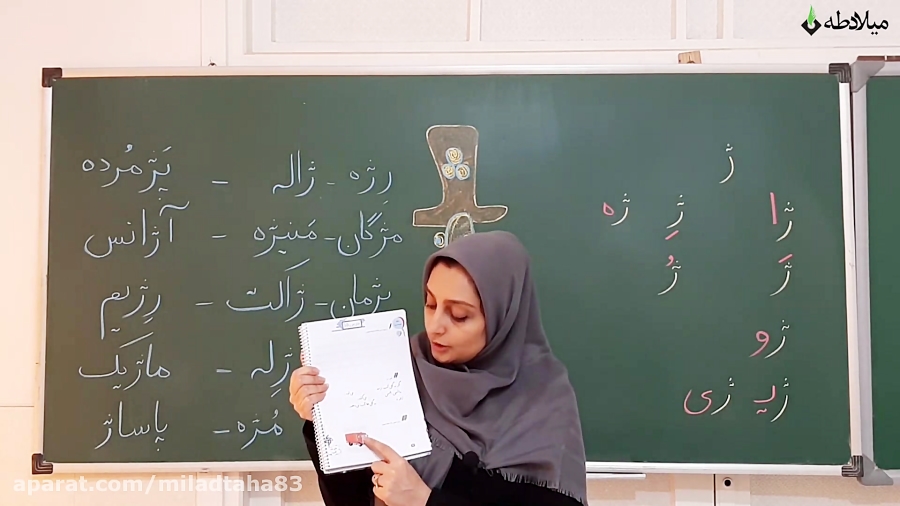 میلاد طه
ژ
ژا ژِ ژه
ژَ ژُ
ژو
ژیـ ژی
رِژه - ژاله - پَژمُرده
مژگان - مَنیژه - آژانس
پژمان - ژاکَت - رِژیم
ژِله - ماژیک
مُژه - پاساژ
aparat.com/miladtaha83